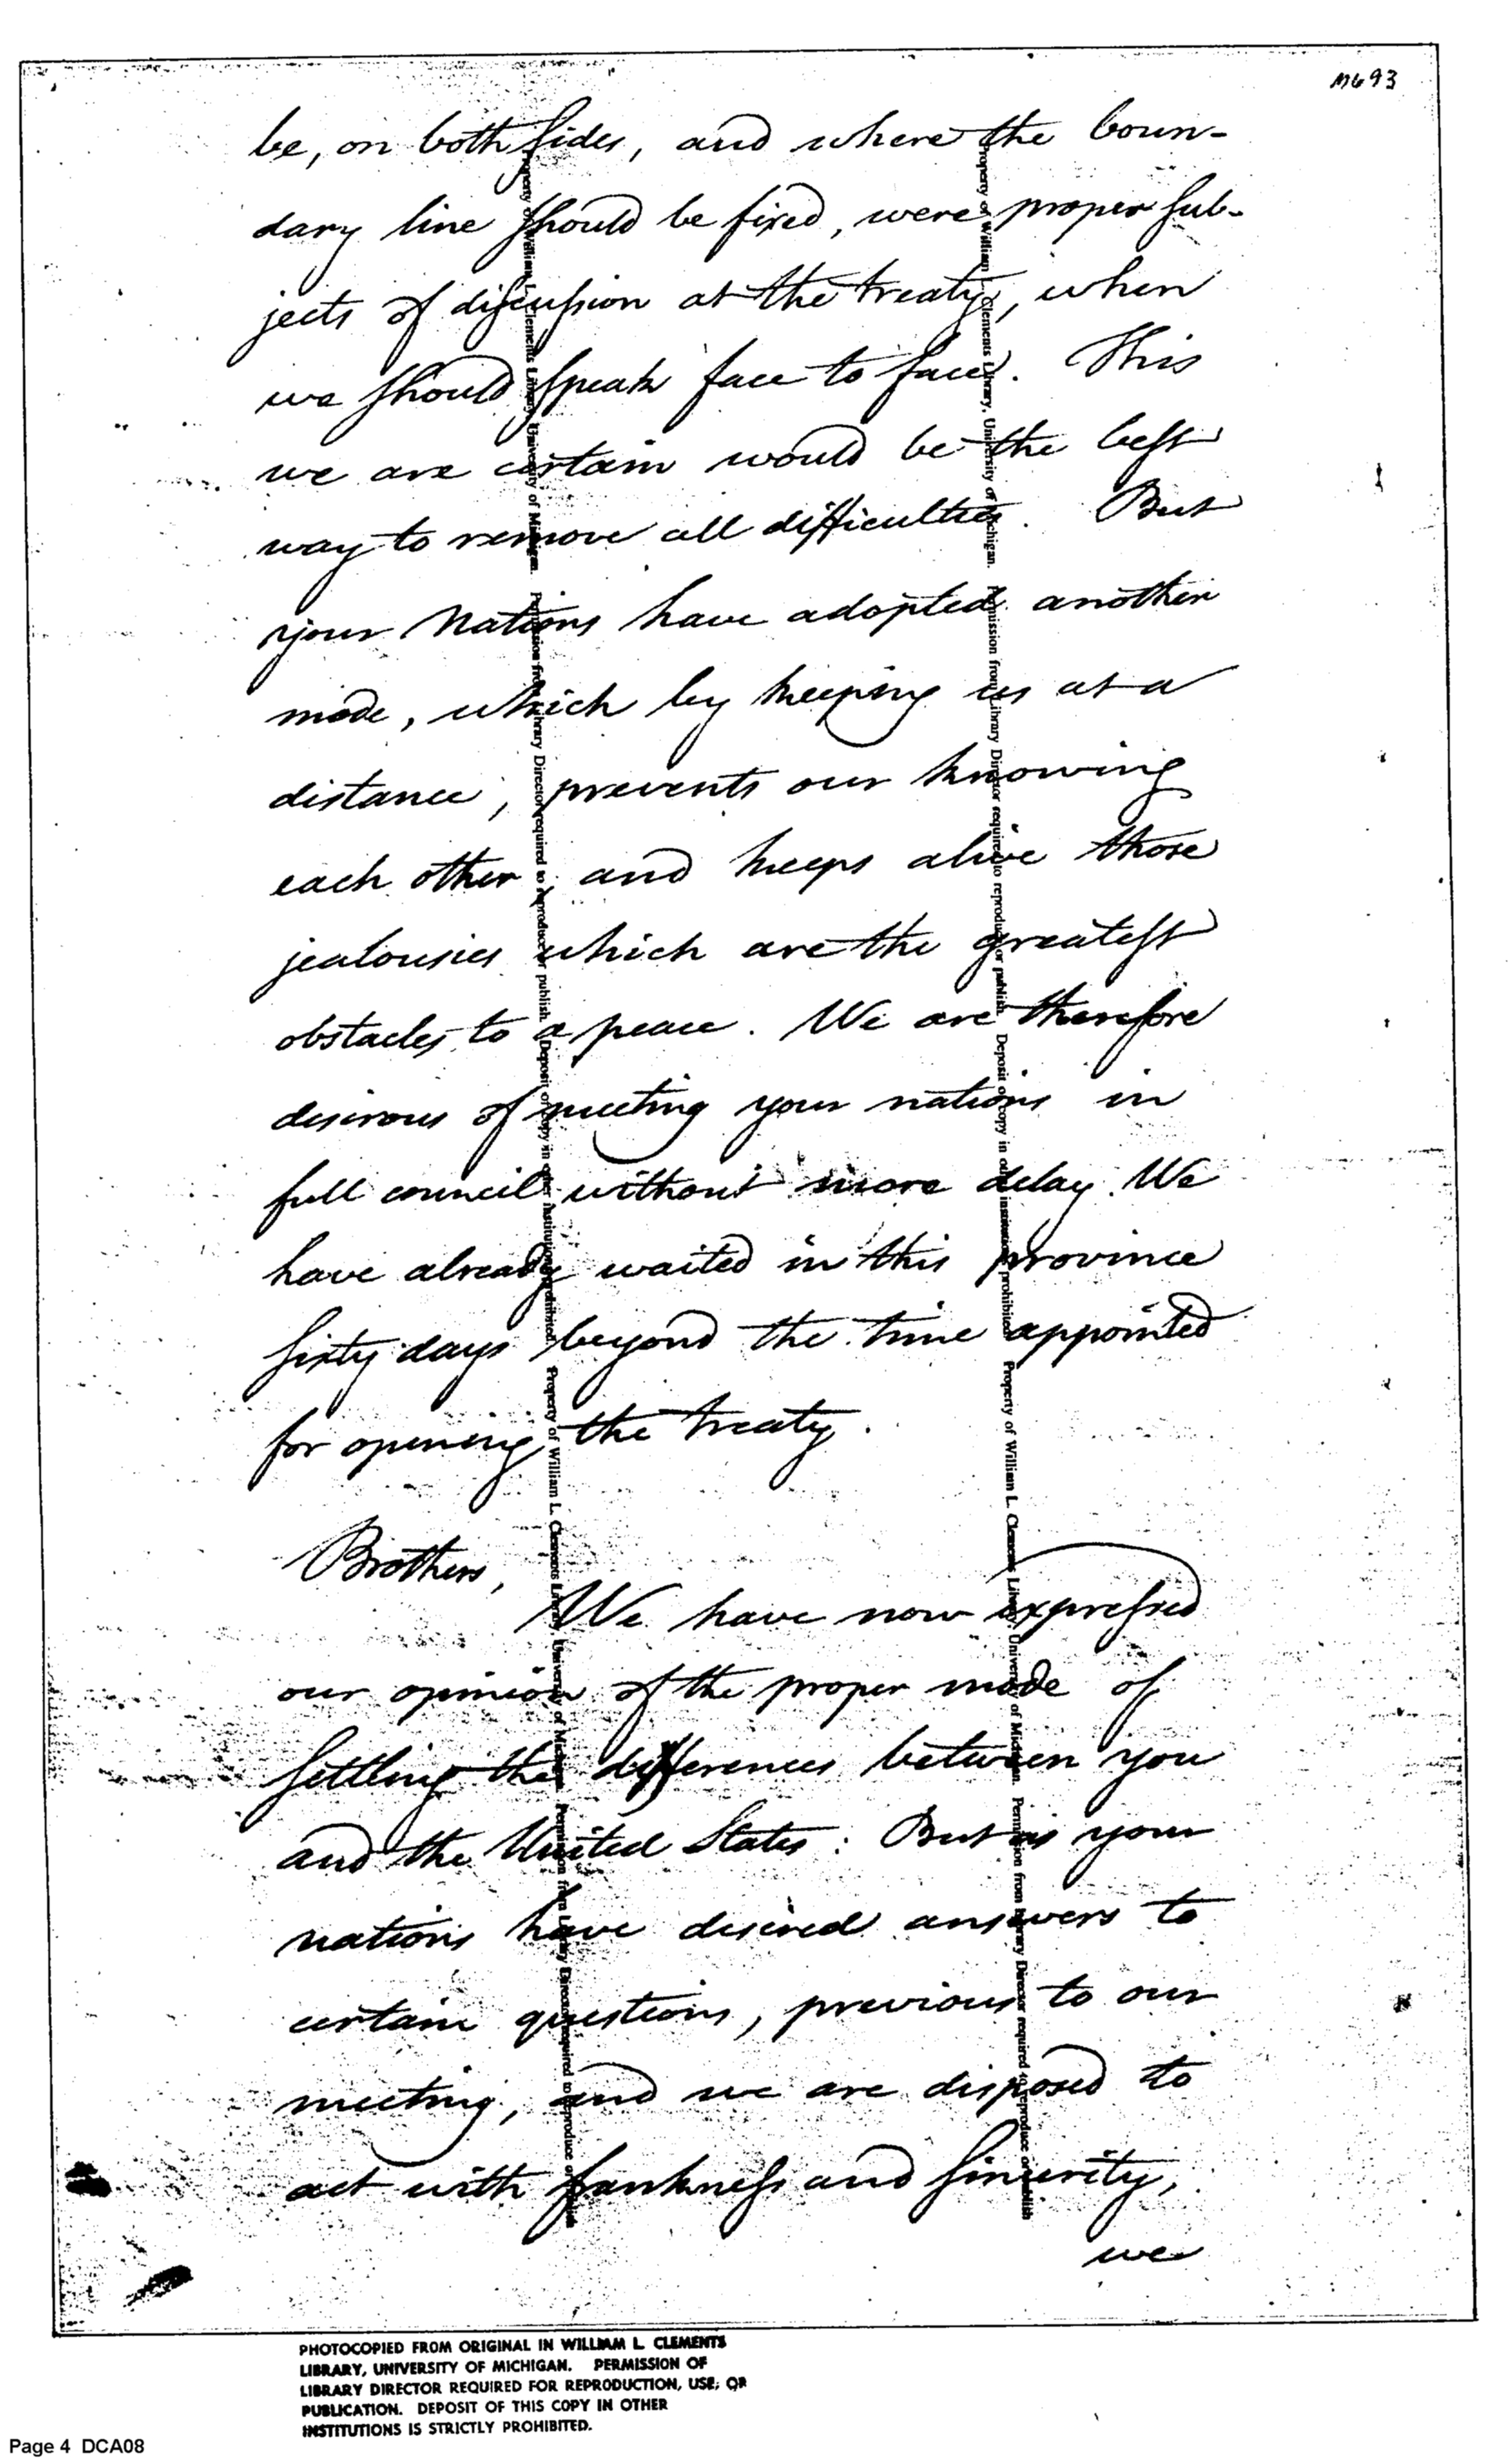 M693
be, on both sides, and where the boun-
dary line should be fixed, were proper sub-
jects of discussion at the treaty, when
we should speak face to face. This
we are certain would be the best
way to remove all difficulties. But
your Nations have adopted another
mode, which by keeping us at a
distance, prevents our knowing
each other, and keeps alive those
jealousies which are the greatest
obstacles to a peace. We are therefore
desirous of meeting your nations in
full council without more delay. We
have already waited in this province
sixty days beyond the time appointed
for opening the treaty.
Brothers,
We have now expressed
our opinion of the proper mode of
settling the differences between you
and the United States: But as your
nations have desired answers to
certain questions, previous to our
meeting, and we are disposed to
act with frankness and sincerity,
we
Property of William L. Clements Library, University of Michigan. Permission from Library Director required to reproduce or publish. Deposit of copy in other institutions prohibited. Property of William L. Clements Library, University of Michigan. Permission from Library Director required to reproduce or publish
Property of William L. Clements Library, University of Michigan. Permission from Library Director required to reproduce or publish. Deposit of copy in other institutions prohibited. Property of William L. Clements Library, University of Michigan. Permission from Library Director required to reproduce or publish
PHOTOCOPIED FROM ORIGINAL IN WILLIAM L. CLEMENTS
LIBRARY, UNIVERSITY OF MICHIGAN. PERMISSION OF
LIBRARY DIRECTOR REQUIRED FOR REPRODUCTION, USE, OR
PUBLICATION. DEPOSIT OF THIS COPY IN OTHER
INSTITUTIONS IS STRICTLY PROHIBITED.
Page 4 DCA08